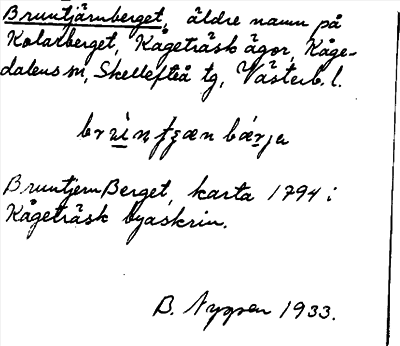 Bruntjärnberget, äldre namn på
Kolarberget, Kågeträsk ägor, Kåge-
dalens sn, Skellefteå tg, Västerb. l.
BruntjernBerget, karta 1794 i
Kågeträsk byaskrin.
B. Nygren 1933.